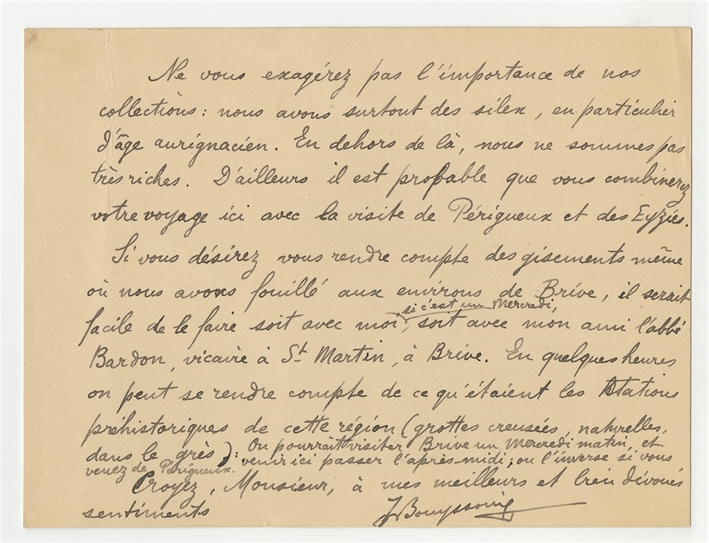 Ne vous exagérez pas l'importance de nos
collections : nous avons surtout des silex, en particulier
d'âge aurignacien. En dehors de là, nous ne sommes pas
très riches. D'ailleurs il est probable que vous combinerez
votre voyage ici avec la visite de Périgueux et des Eyziés.
Si vous désirez vous rendre compte des gisements même
où nous avons fouillé aux environs de Brive, il serait
si c'est un Mercredi,
facile de le faire soit avec moi, soit avec mon ami l'abbé
Bardon, vicaire à St Martin, à Brive. En quelques heures
on peut se rendre compte de ce qu'étaient les stations
préhistoriques de cette région (grottes creusées, naturelles,
dans le grès) : On pourrait visiter Brive un Mercredi matin, et
venir ici passer l'après-midi ; ou l'inverse si vous
venez de Périgueux.
Croyez, Monsieur, à mes meilleurs et bien dévoués
sentiments
J Bouyssonie